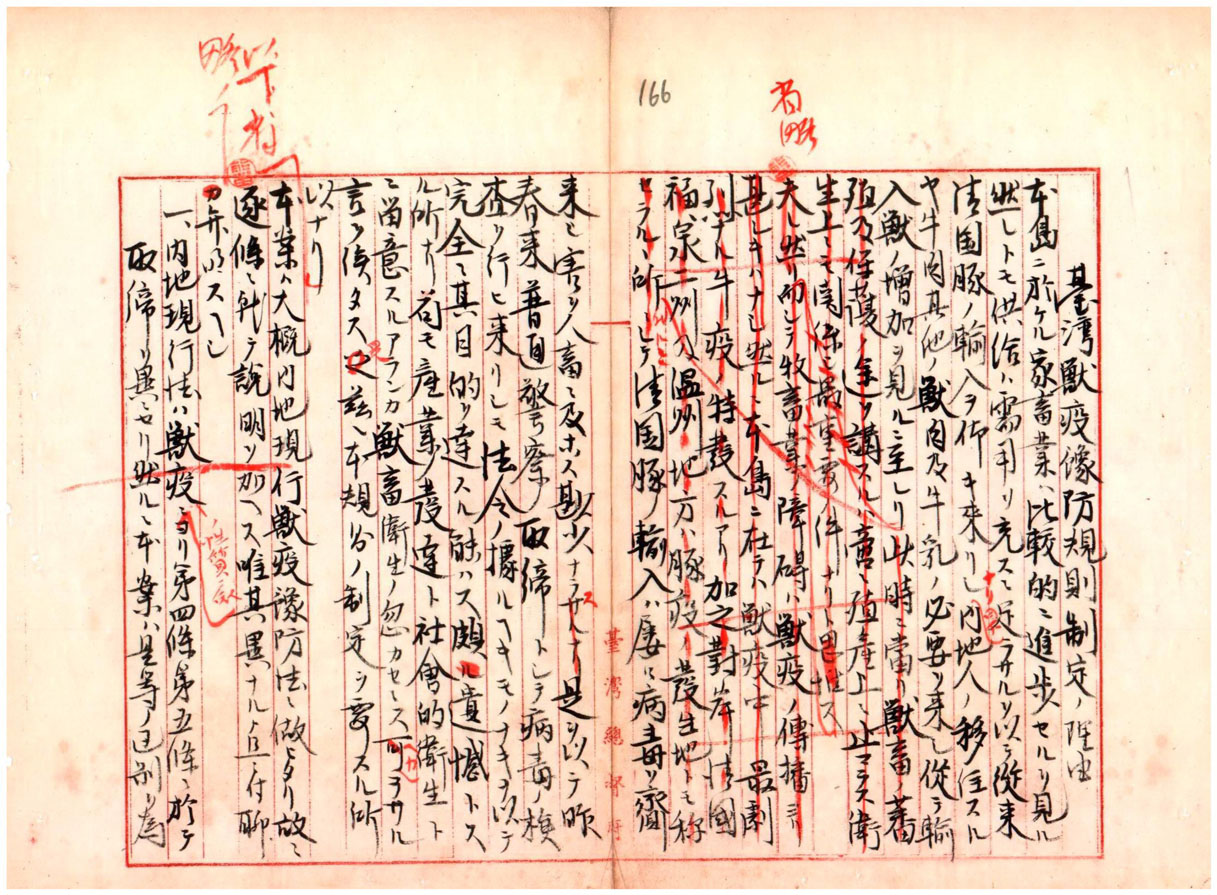 166
省略
臺湾獸疫豫防規則制定ノ理由
本島ニ於ケル家畜業ハ比較的ニ進歩セルヲ見ル
然レトモ供給ハ需用ヲ充スニ足ラサルヲ以テ從来
清国豚ノ輸入ヲ仰キ来リシカ内地人ノ移住スル
ヤ牛肉其他ノ獸肉及牛乳ノ必要ヲ来シ從テ輸
入獸ノ増加ヲ見ルニ至レリ此時ニ當リ獸畜ノ蕃
殖及保護ノ途ヲ講スルハ啻ニ殖産上ニ止マラス衛
生上ニモ関係シ最重要ノ件ナリト思惟ス
夫レ然リ而シテ牧畜業ノ障碍ハ獸疫ノ傳播ヨリ
甚シキハナシ然ルニ本島ニ在テハ獸疫中最劇
烈ナル牛疫ノ特發スルアリ加之對岸清國
福泉二州及温州地方ハ豚疫ノ發生地トモ称
セラルヽ所ニシテ清国豚ノ輸入ハ屡ニ病毒ヲ齎
来シ害ヲ人畜ニ及ホス尠少ナラサルナリ是ヲ以テ昨
春来普通警察取締トシテ病毒ノ検
査ヲ行ヒ来リシモ法令ノ據ルヘキモノナキヲ以テ
完全ニ其目的ヲ達スル能ハス頗ル遺憾トス
ル所ナリ苟モ産業ノ發達ト社會的衛生ト
ニ留意スルアランカ獸畜衛生ノ忽カセニス可ラサル
言ヲ俟タス是茲ニ本規則ノ制定ヲ要スル所
以ナリ
以下朱書
略ス
本案ハ大概内地現行獸疫豫防法ニ倣ヒタリ故ニ
逐條ニ就テ説明ヲ加ヘス唯其異ナル点ニ付聊
カ弁明スヘシ
一、内地現行法ハ獸疫ニヨリ第四條第五條ニ於テ
ノ性質
取締ヲ異ニセリ然ルニ本案ハ是等ノ区別ヲ為
臺灣總督府